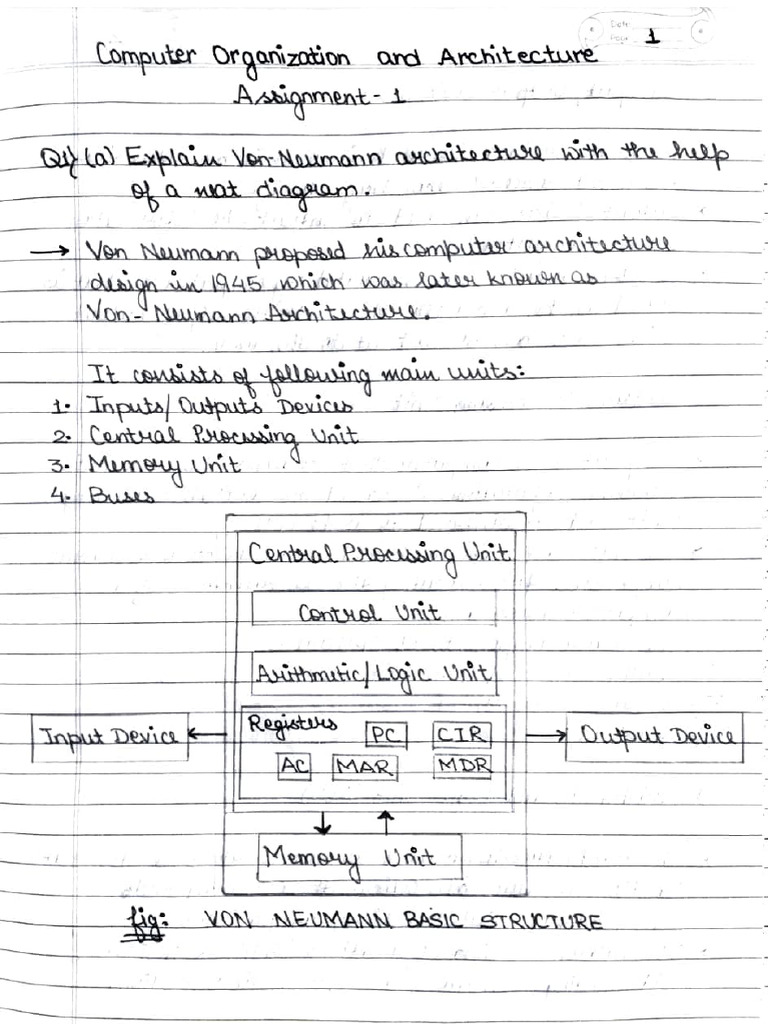 Date
Page 1
Computer Organization and Architecture
Assignment-1
Q1) (a) Explain Von-Neumann architecture with the help
of a neat diagram.
→ Von Neumann proposed his computer architecture
design in 1945 which was later known as
Von-Neumann Architecture.
It consists of following main units:
1. Inputs/Outputs Devices
2. Central Processing Unit
3. Memory Unit
4. Buses
Central Processing Unit
Control Unit
Arithmetic/Logic Unit
Registers PC CIR
Input Device
Output Device
AC MAR MDR
Memory Unit
fig: VON NEUMANN BASIC STRUCTURE